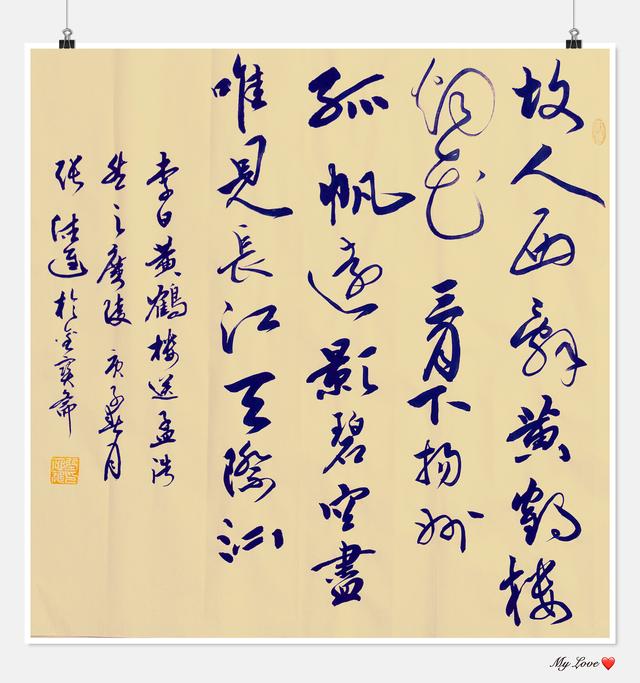 故人西辭黄鶴楼
烟花三月下扬州
孤帆遠影碧空盡
唯見長江天際流
李白黄鶴楼送孟浩
然之廣陵 庚子春月
張 於金寶斋
My Love ❤️